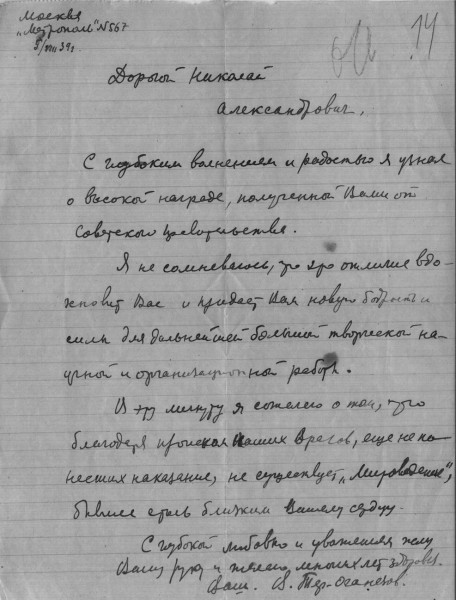 Москва
"Метрополь" №567
5/VIII 39г.
14
Дорогой Николай
Александрович,
С глубоким волнением и радостью я узнал
о высокой награде, полученной Вами от
Советского Правительства.
Я не сомневаюсь, что это отличие вдо-
хновит Вас и придаст Вам новую бодрость и
силы для дальнейшей большой творческой на-
учной и организационной работы.
В эту минуту я сожалею о том, что
благодаря проискам Наших Врагов, еще не по-
несших наказание, не существует "Мироведение",
бывшее столь близким Вашему сердцу.
С глубокой любовью и уважением жму
Вашу руку и желаю многих лет здоровья.
Ваш. В. Тер-Оганезов.